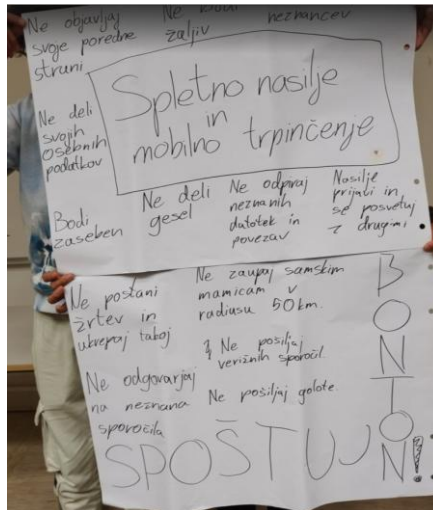 Ne objavljaj
svoje poredne
strani
Ne
žaljiv
neznancev
Spletno nasilje
in
mobilno trpinčenje
Ne deli
svojih
osebnih
podatkov
Bodi
zaseben
Ne deli
gesel
Ne odpiraj
neznanih
datotek in
povezav
Nasilje
prijavi in
se posvetuj
z drugimi
Ne postani
žrtev in
ukrepaj takoj
Ne zaupaj samskim
mamicam v
radiusu 50km.
Ne pošiljaj
verižnih sporočil.
Ne odgovarjaj
na neznana
sporočila
Ne pošiljaj golote.
BONTON!
SPOŠTUJ